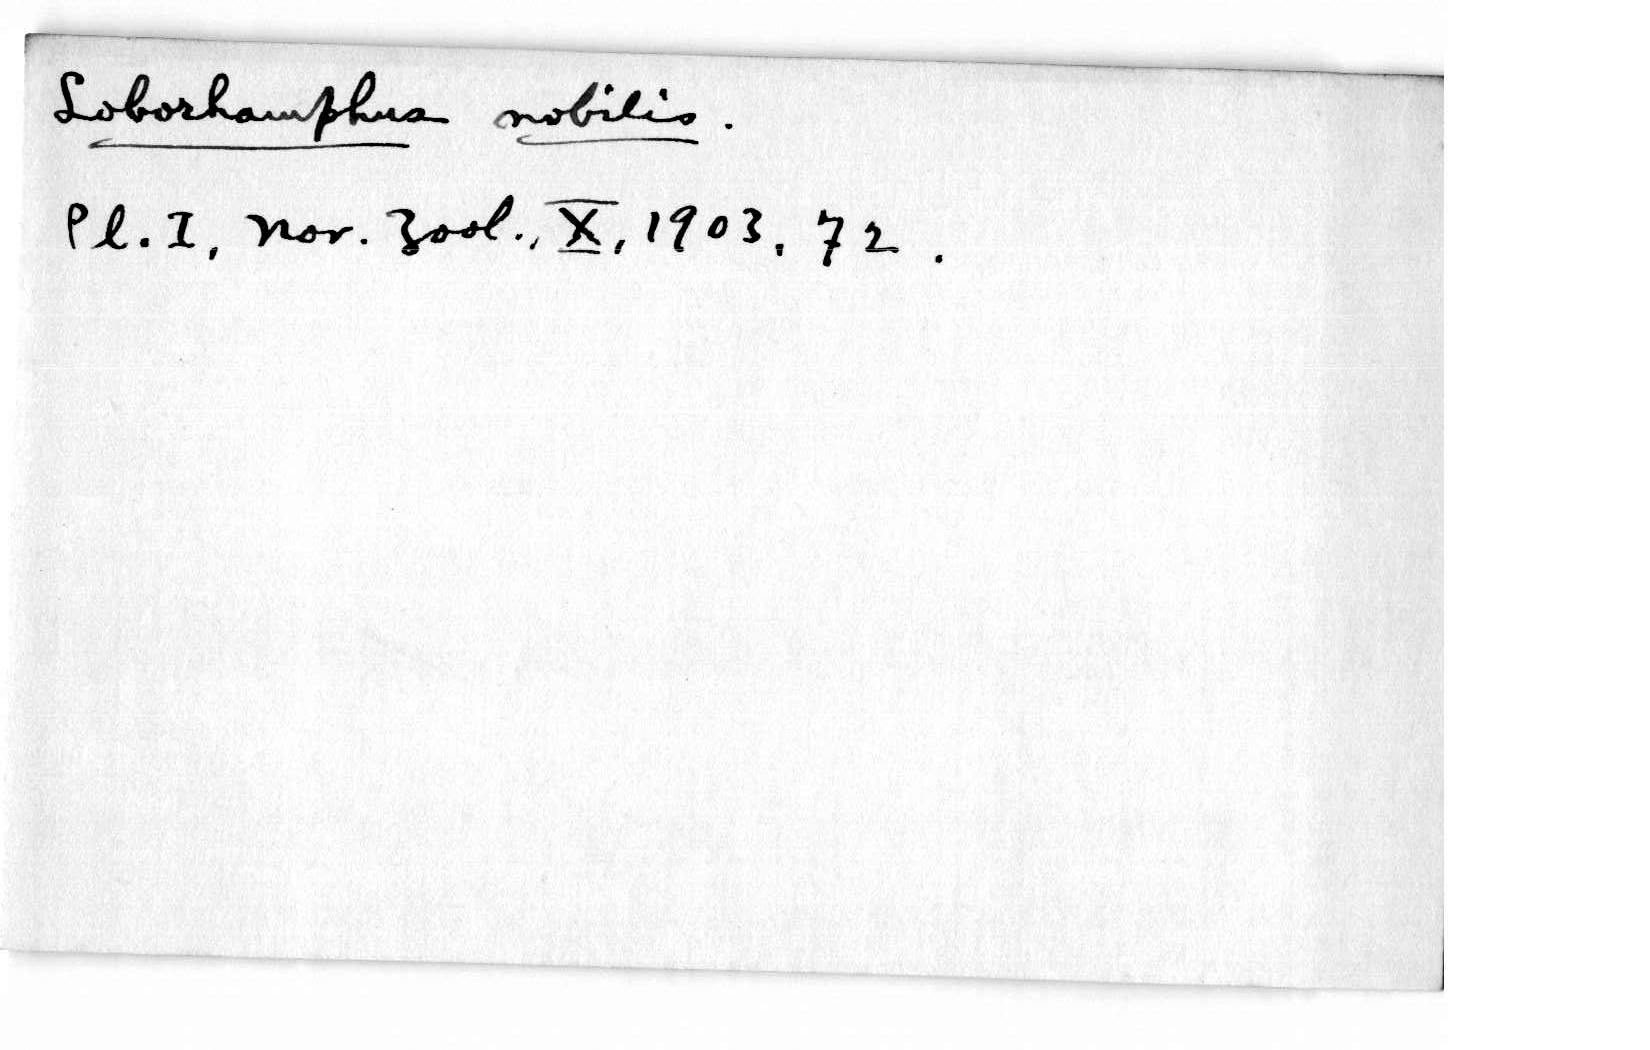 Loborhamphus nobilis.
Pl. I, Nov. Zool., X, 1903, 72.